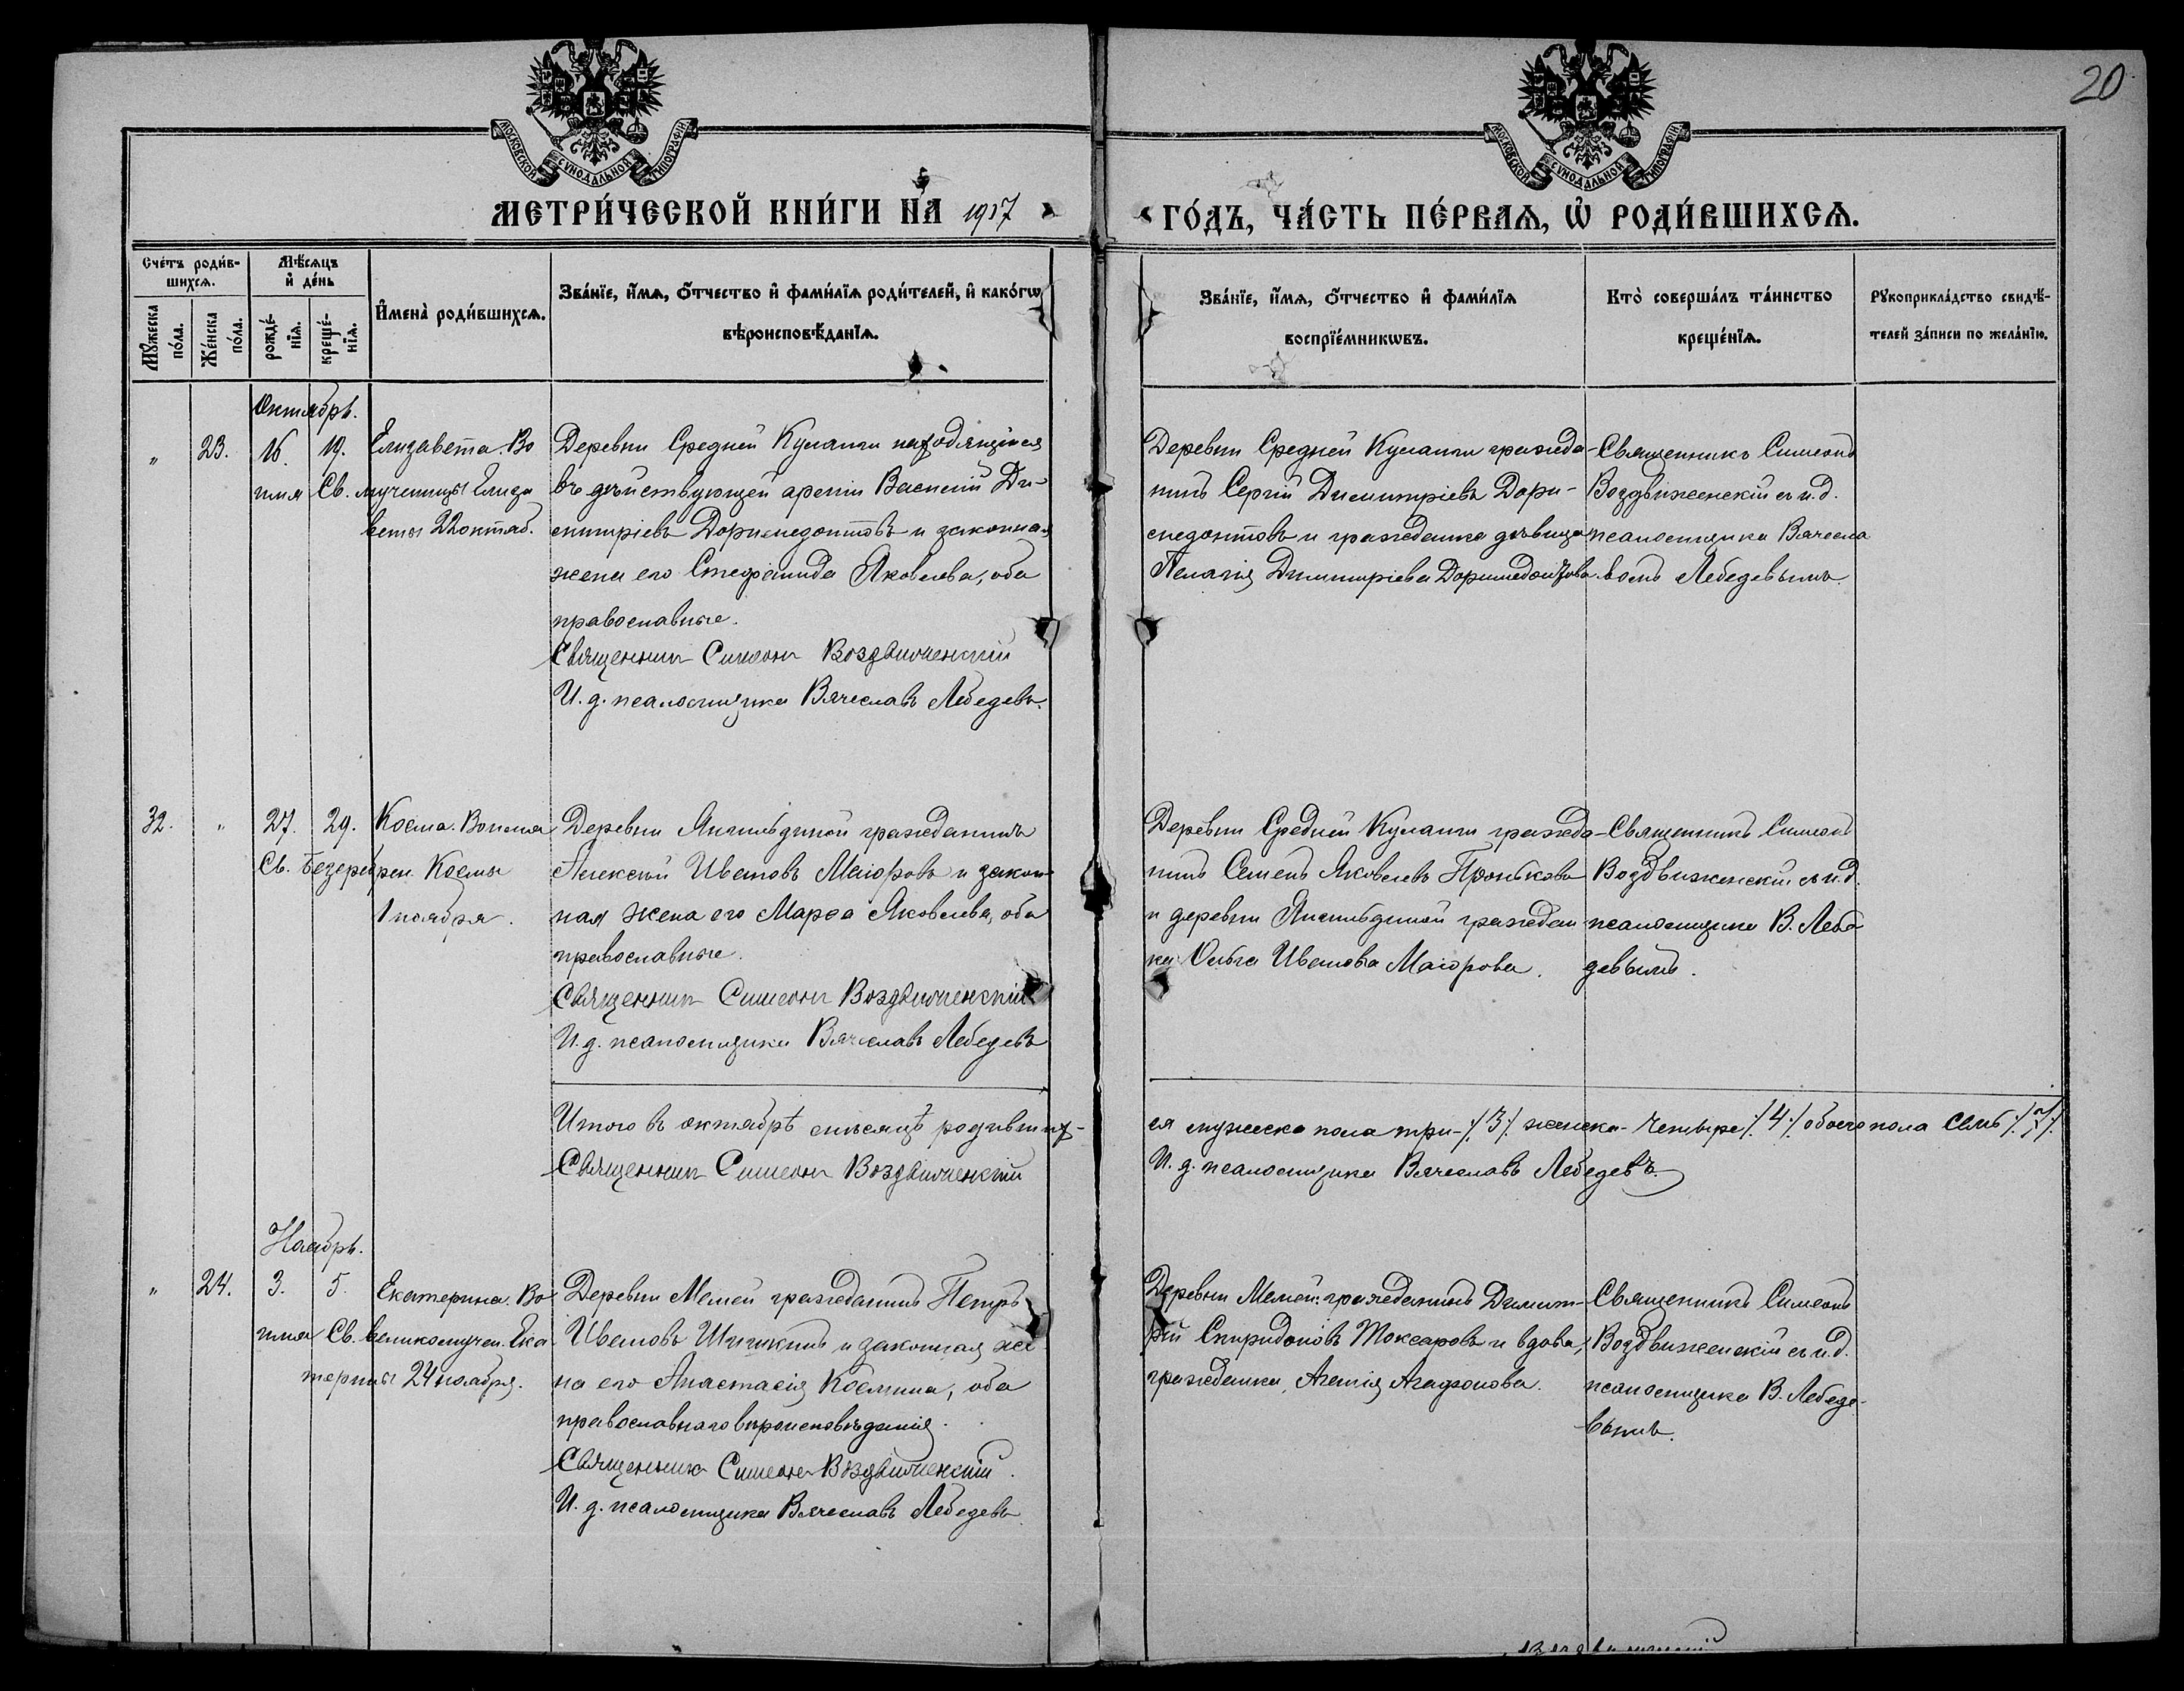 20
МОСКОВСКОЙ СѴНОДАЛЬНОЙ ТИПОГРАФІИ
МОСКОВСКОЙ СѴНОДАЛЬНОЙ ТИПОГРАФІИ
МЕТРИ́ЧЕСКОЙ КНИ́ГИ НА 1917 ГО́ДЪ, ЧА́СТЬ ПЕ́РВАѦ, Ѡ҆ РОДИ́ВШИХСѦ.
Сче́тъ роди́в-
шихсѧ.
Мꙋ́жеска по́ла.
Же́нска по́ла.
Мѣ́сѧцъ
и҆ де́нь
рожде́-
нїѧ.
креще́-
нїѧ.
И҆мена̀ роди́вшихсѧ.
Зва́нїе, и҆́мѧ, ѻ҆́тчество и҆ фами́лїѧ роди́телей, и҆ како́гѡ
вѣроисповѣ́данїѧ.
Зва́нїе, и҆́мѧ, ѻ҆́тчество и҆ фами́лїѧ
воспрїе́мникѡвъ.
Кто̀ соверша́лъ та́инство
креще́нїѧ.
Рꙋкоприкла́дство свидѣ́-
телей за́писи по жела́нїю.
Октябрь.
„ 23. 16. 19. Елизавета. Во
имя Св. мученицы Елиза
веты 22 октяб.
Деревни Средней Куланги находящійся
въ дѣйствующей арміи Василій Ди-
митріевъ Доримедонтовъ и законная
жена его Стефанида Яковлева, оба
православные.
Священникъ Симеонъ Воздвиженскій
И. д. псаломщика Вячеславъ Лебедевъ.
Деревни Средней Куланги гражда-
нинъ Сергій Димитріевъ Дори-
медонтовъ и гражданка дѣвица
Пелагія Димитріева Доримедонтова.
Священникъ Симеонъ
Воздвиженскій съ и. д.
псаломщика Вячесла
вомъ Лебедевымъ.
32. „ 27. 29. Косма. Во имя
Св. безсребрен. Космы
1 ноября.
Деревни Янгильдиной гражданинъ
Алексѣй Ивановъ Маіоровъ и закон-
ная жена его Марѳа Яковлева, оба
православные.
Священникъ Симеонъ Воздвиженскій
И. д. псаломщика Вячеславъ Лебедевъ
Деревни Средней Куланги гражда-
нинъ Семенъ Яковлевъ Проньковъ
и деревни Янгильдиной граждан
ка Ольга Иванова Маіорова.
Священникъ Симеонъ
Воздвиженскій съ и. д.
псаломщика В. Лебе
девымъ.
Итого въ октябрѣ мѣсяцѣ родивших-
ся мужеска пола три ⁒ 3 ⁒ женска четыре ⁒ 4 ⁒ обоего пола семь ⁒ 7 ⁒
Священникъ Симеонъ Воздвиженскій
И. д. псаломщика Вячеславъ Лебедевъ.
Ноябрь.
„ 24. 3. 5. Екатерина. Во
имя Св. великомучен. Ека
терины 24 ноября.
Деревни Мемей гражданинъ Петръ
Ивановъ Шишкинъ и законная же
на его Анастасія Космина, оба
православнаго вѣроисповѣданія.
Священникъ Симеонъ Воздвиженскій.
И. д. псаломщика Вячеславъ Лебедевъ
Деревни Мемей: гражданинъ Димит-
рій Спиридоновъ Токсаровъ и вдова,
гражданка, Агаѳонова.
Священникъ Симеонъ
Воздвиженскій съ и. д.
псаломщика В. Лебеде-
вымъ.